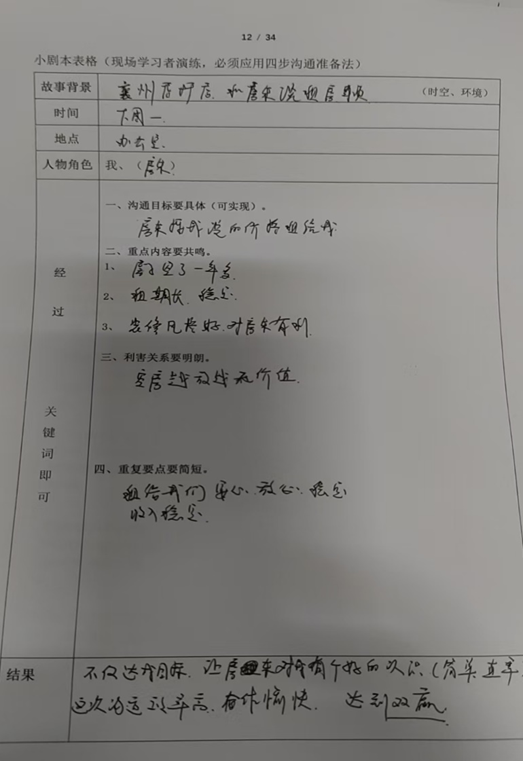 12 / 34
小剧本表格（现场学习者演练，必须应用四步沟通准备法）
故事背景 襄州店 和房东谈租房事项 （时空、环境）
时间 下周一
地点 办公室
人物角色 我、（房东）
一、沟通目标要具体（可实现）。
房东按我谈的价格租给我
二、重点内容要共鸣。
1、 了一年多
2、 租期长、稳定
3、 装修风格好、对房东有利
三、利害关系要明朗。
空房越放越无价值
四、重复要点要简短。
租给我们 安心、放心、稳定
收入稳定
经
过
关
键
词
即
可
结果
不仅达成目标、让房东对我有个好的认识（简单直率
这次沟通效率高、合作愉快、达到双赢